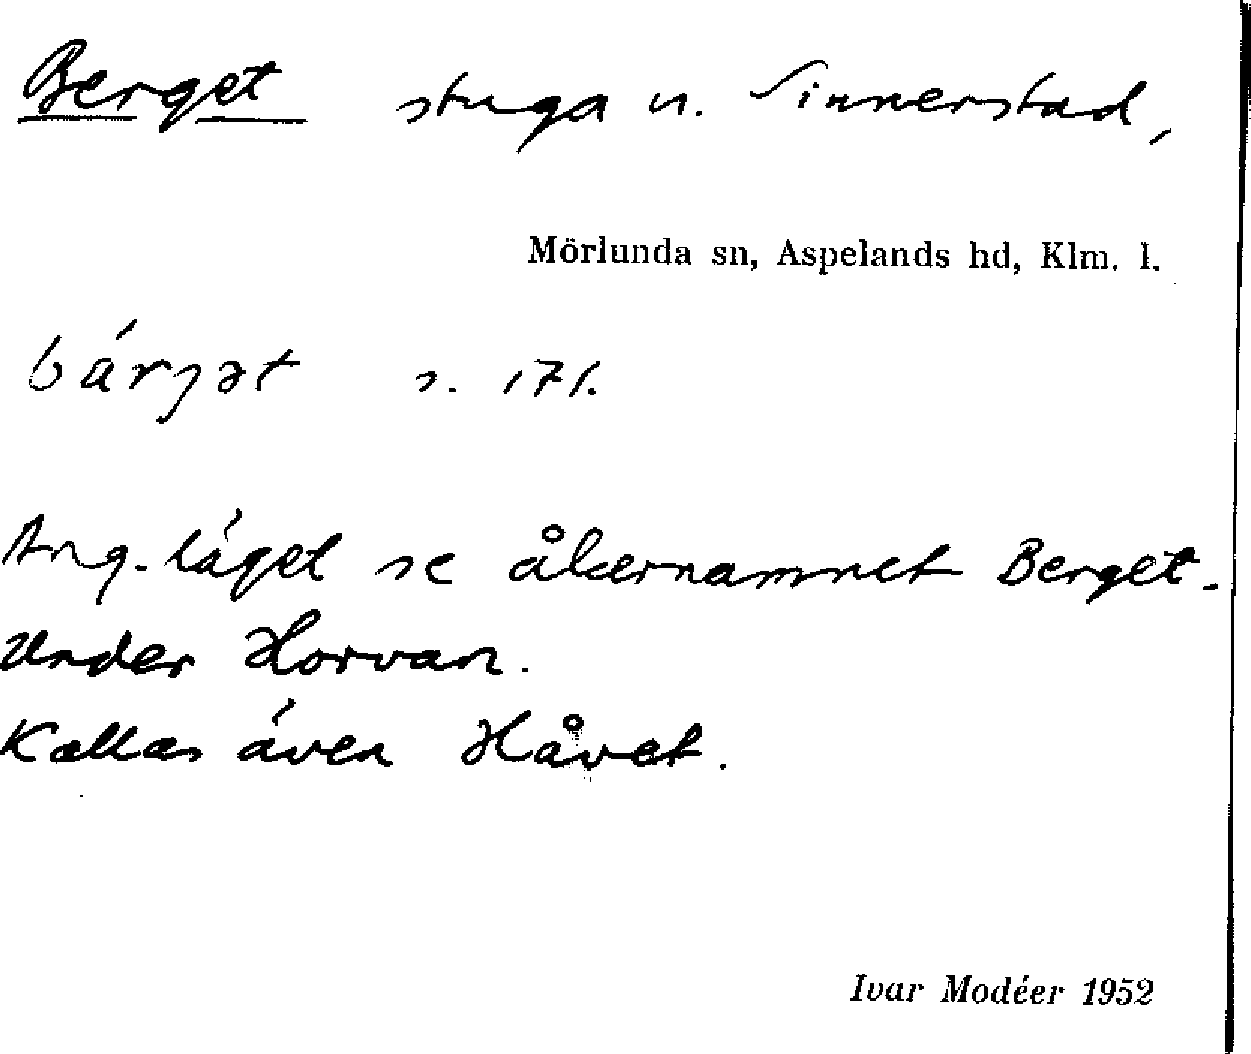 Berget stuga u. Sinnerstad,
Mörlunda sn, Aspelands hd, Klm. l.
bárjət s. 171.
Ang. läget se åkernamnet Berget.
Under Horvan.
Kallas även Håvet.
Ivar Modéer 1952